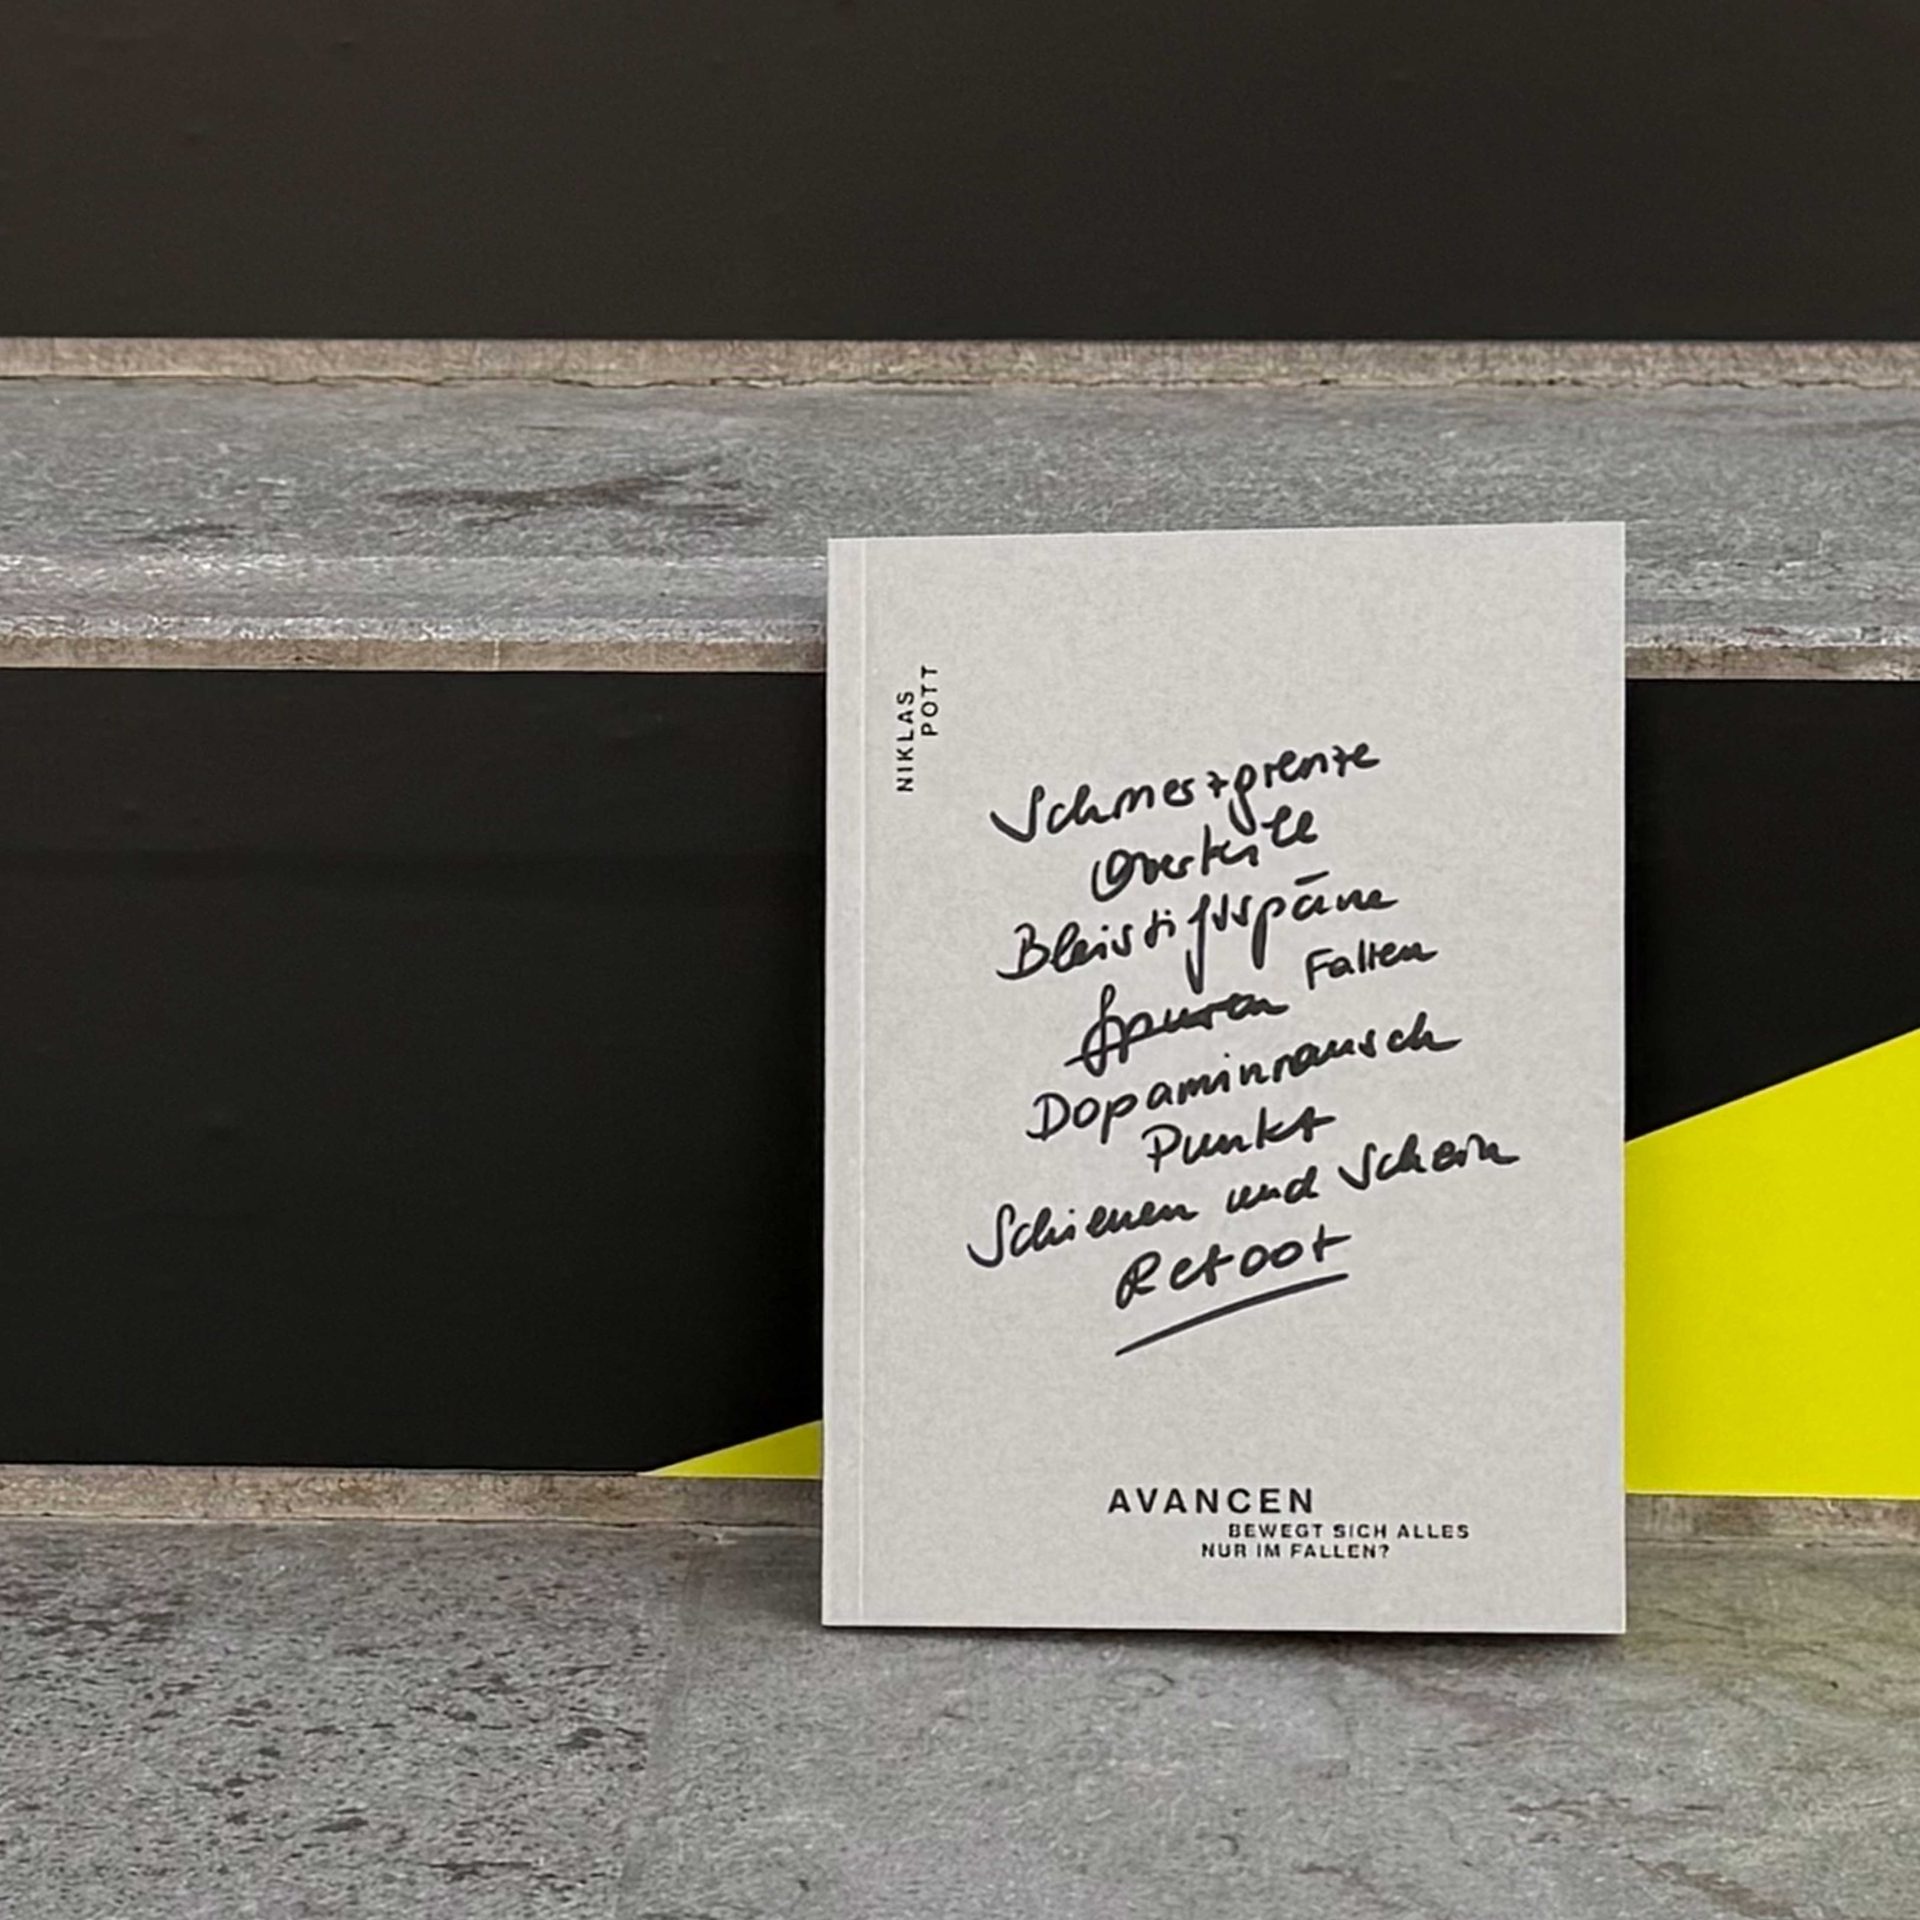 NIKLAS
POTT
Schmerzgrenze
Overkill
Bleistiftspäne
Spuren Falten
Dopaminrausch
Punkt
Schienen und Schein
Retoot
AVANCEN
BEWEGT SICH ALLES
NUR IM FALLEN?